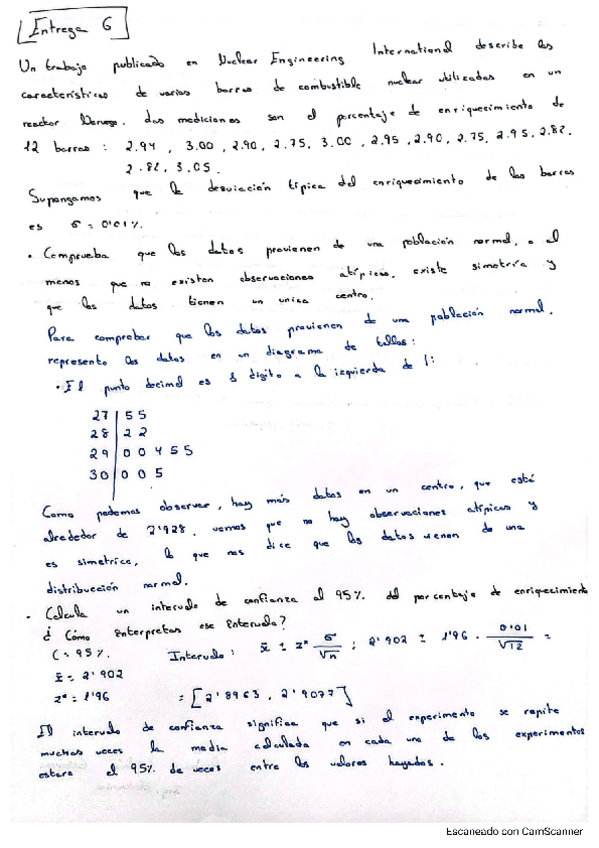 Entrega 6
Un trabajo publicado en Nuclear Engineering International describe las
características de varias barras de combustible nuclear utilizadas en un
reactor Noruego. Las mediciones son el porcentaje de enriquecimiento de
12 barras : 2.94 , 3.00 , 2.90 , 2.75, 3.00 , 2.95 , 2.90, 2.75, 2.95, 2.82.
2.82, 3.05.
Supongamos que la desviación típica del enriquecimiento de las barras
es σ = 0'01%.
· Comprueba que los datos provienen de una población normal, o al
menos que no existen observaciones atípicas, existe simetría y
que los datos tienen un unico centro.
Para comprobar que los datos provienen de una población normal,
represento los datos en un diagrama de tallos:
· El punto decimal es 1 digito a la izquierda de |:
27 | 5 5
28 | 2 2
29 | 0 0 4 5 5
30 | 0 0 5
Como podemos observar, hay más datos en un centro, que está
alrededor de 2'928, vemos que no hay observaciones atípicas y
es simetrica, lo que nos dice que los datos vienen de una
distribucción normal.
· Calcula un intervalo de confianza al 95% del porcentaje de enriquecimiento
¿Cómo interpretas ese intervalo?
C = 95%. Intervalo : x̄ ± z* σ/√n ; 2'902 ± 1'96 · 0'01/√12 =
x̄ = 2'902
z* = 1'96 = [2'8963 , 2'9077]
El intervalo de confianza significa que si el experimento se repite
muchas veces la media calculada en cada uno de los experimentos
estara el 95% de veces entre los valores hayados.
Escaneado con CamScanner